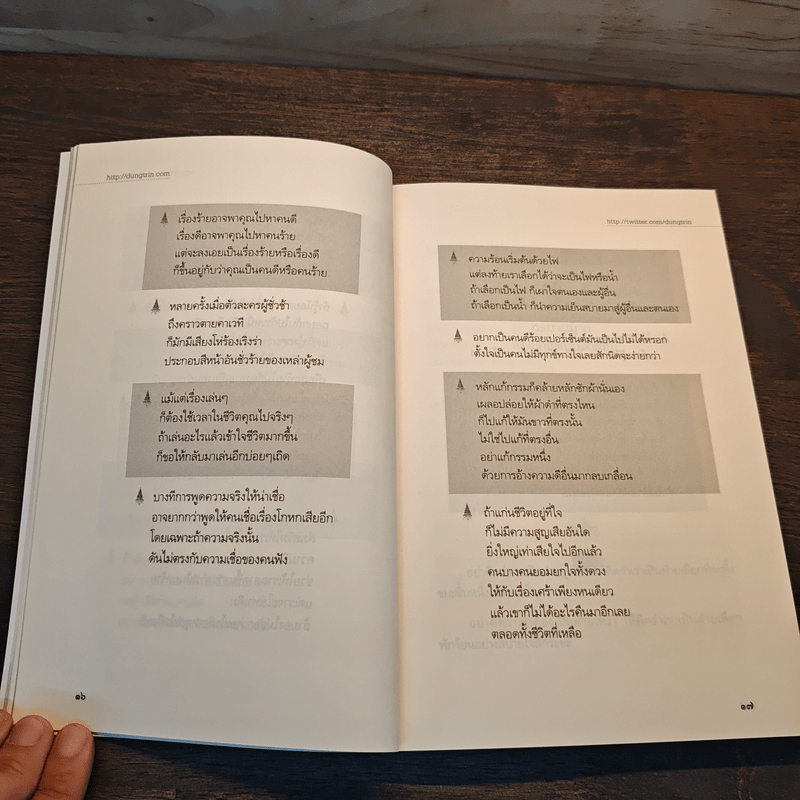 http://dungtrin.com
เรื่องร้ายอาจพาคุณไปหาคนดี
เรื่องดีอาจพาคุณไปหาคนร้าย
แต่จะลงเอยเป็นเรื่องร้ายหรือเรื่องดี
ก็ขึ้นอยู่กับว่าคุณเป็นคนดีหรือคนร้าย
หลายครั้งเมื่อตัวละครผู้ชั่วช้า
ถึงคราวตายคาเวที
ก็มักมีเสียงโห่ร้องเริงร่า
ประกอบสีหน้าอันชั่วร้ายของเหล่าผู้ชม
แม้แต่เรื่องเล่นๆ
ก็ต้องใช้เวลาในชีวิตคุณไปจริงๆ
ถ้าเล่นอะไรแล้วเข้าใจชีวิตมากขึ้น
ก็ขอให้กลับมาเล่นอีกบ่อยๆเถิด
บางทีการพูดความจริงให้น่าเชื่อ
อาจยากกว่าพูดให้คนเชื่อเรื่องโกหกเสียอีก
โดยเฉพาะถ้าความจริงนั้น
ดันไม่ตรงกับความเชื่อของคนฟัง
๑๖
http://twitter.com/dungtrin
ความร้อนเริ่มต้นด้วยไฟ
แต่ลงท้ายเราเลือกได้ว่าจะเป็นไฟหรือน้ำ
ถ้าเลือกเป็นไฟ ก็เผาใจตนเองและผู้อื่น
ถ้าเลือกเป็นน้ำ ก็นำความเย็นสบายมาสู่ผู้อื่นและตนเอง
อยากเป็นคนดีร้อยเปอร์เซ็นต์มันเป็นไปไม่ได้หรอก
ตั้งใจเป็นคนไม่มีทุกข์ทางใจเลยสักนิดจะง่ายกว่า
หลักแก้กรรมก็คล้ายหลักซักผ้านั่นเอง
เผลอปล่อยให้ผ้าดำที่ตรงไหน
ก็ไปแก้ให้มันขาวที่ตรงนั้น
ไม่ใช่ไปแก้ที่ตรงอื่น
อย่าแก้กรรมหนึ่ง
ด้วยการอ้างความดีอื่นมากลบเกลื่อน
ถ้าแก่นชีวิตอยู่ที่ใจ
ก็ไม่มีความสูญเสียอันใด
ยิ่งใหญ่เท่าเสียใจไปอีกแล้ว
คนบางคนยอมยกใจทั้งดวง
ให้กับเรื่องเศร้าเพียงหนเดียว
แล้วเขาก็ไม่ได้อะไรคืนมาอีกเลย
ตลอดทั้งชีวิตที่เหลือ
๑๗